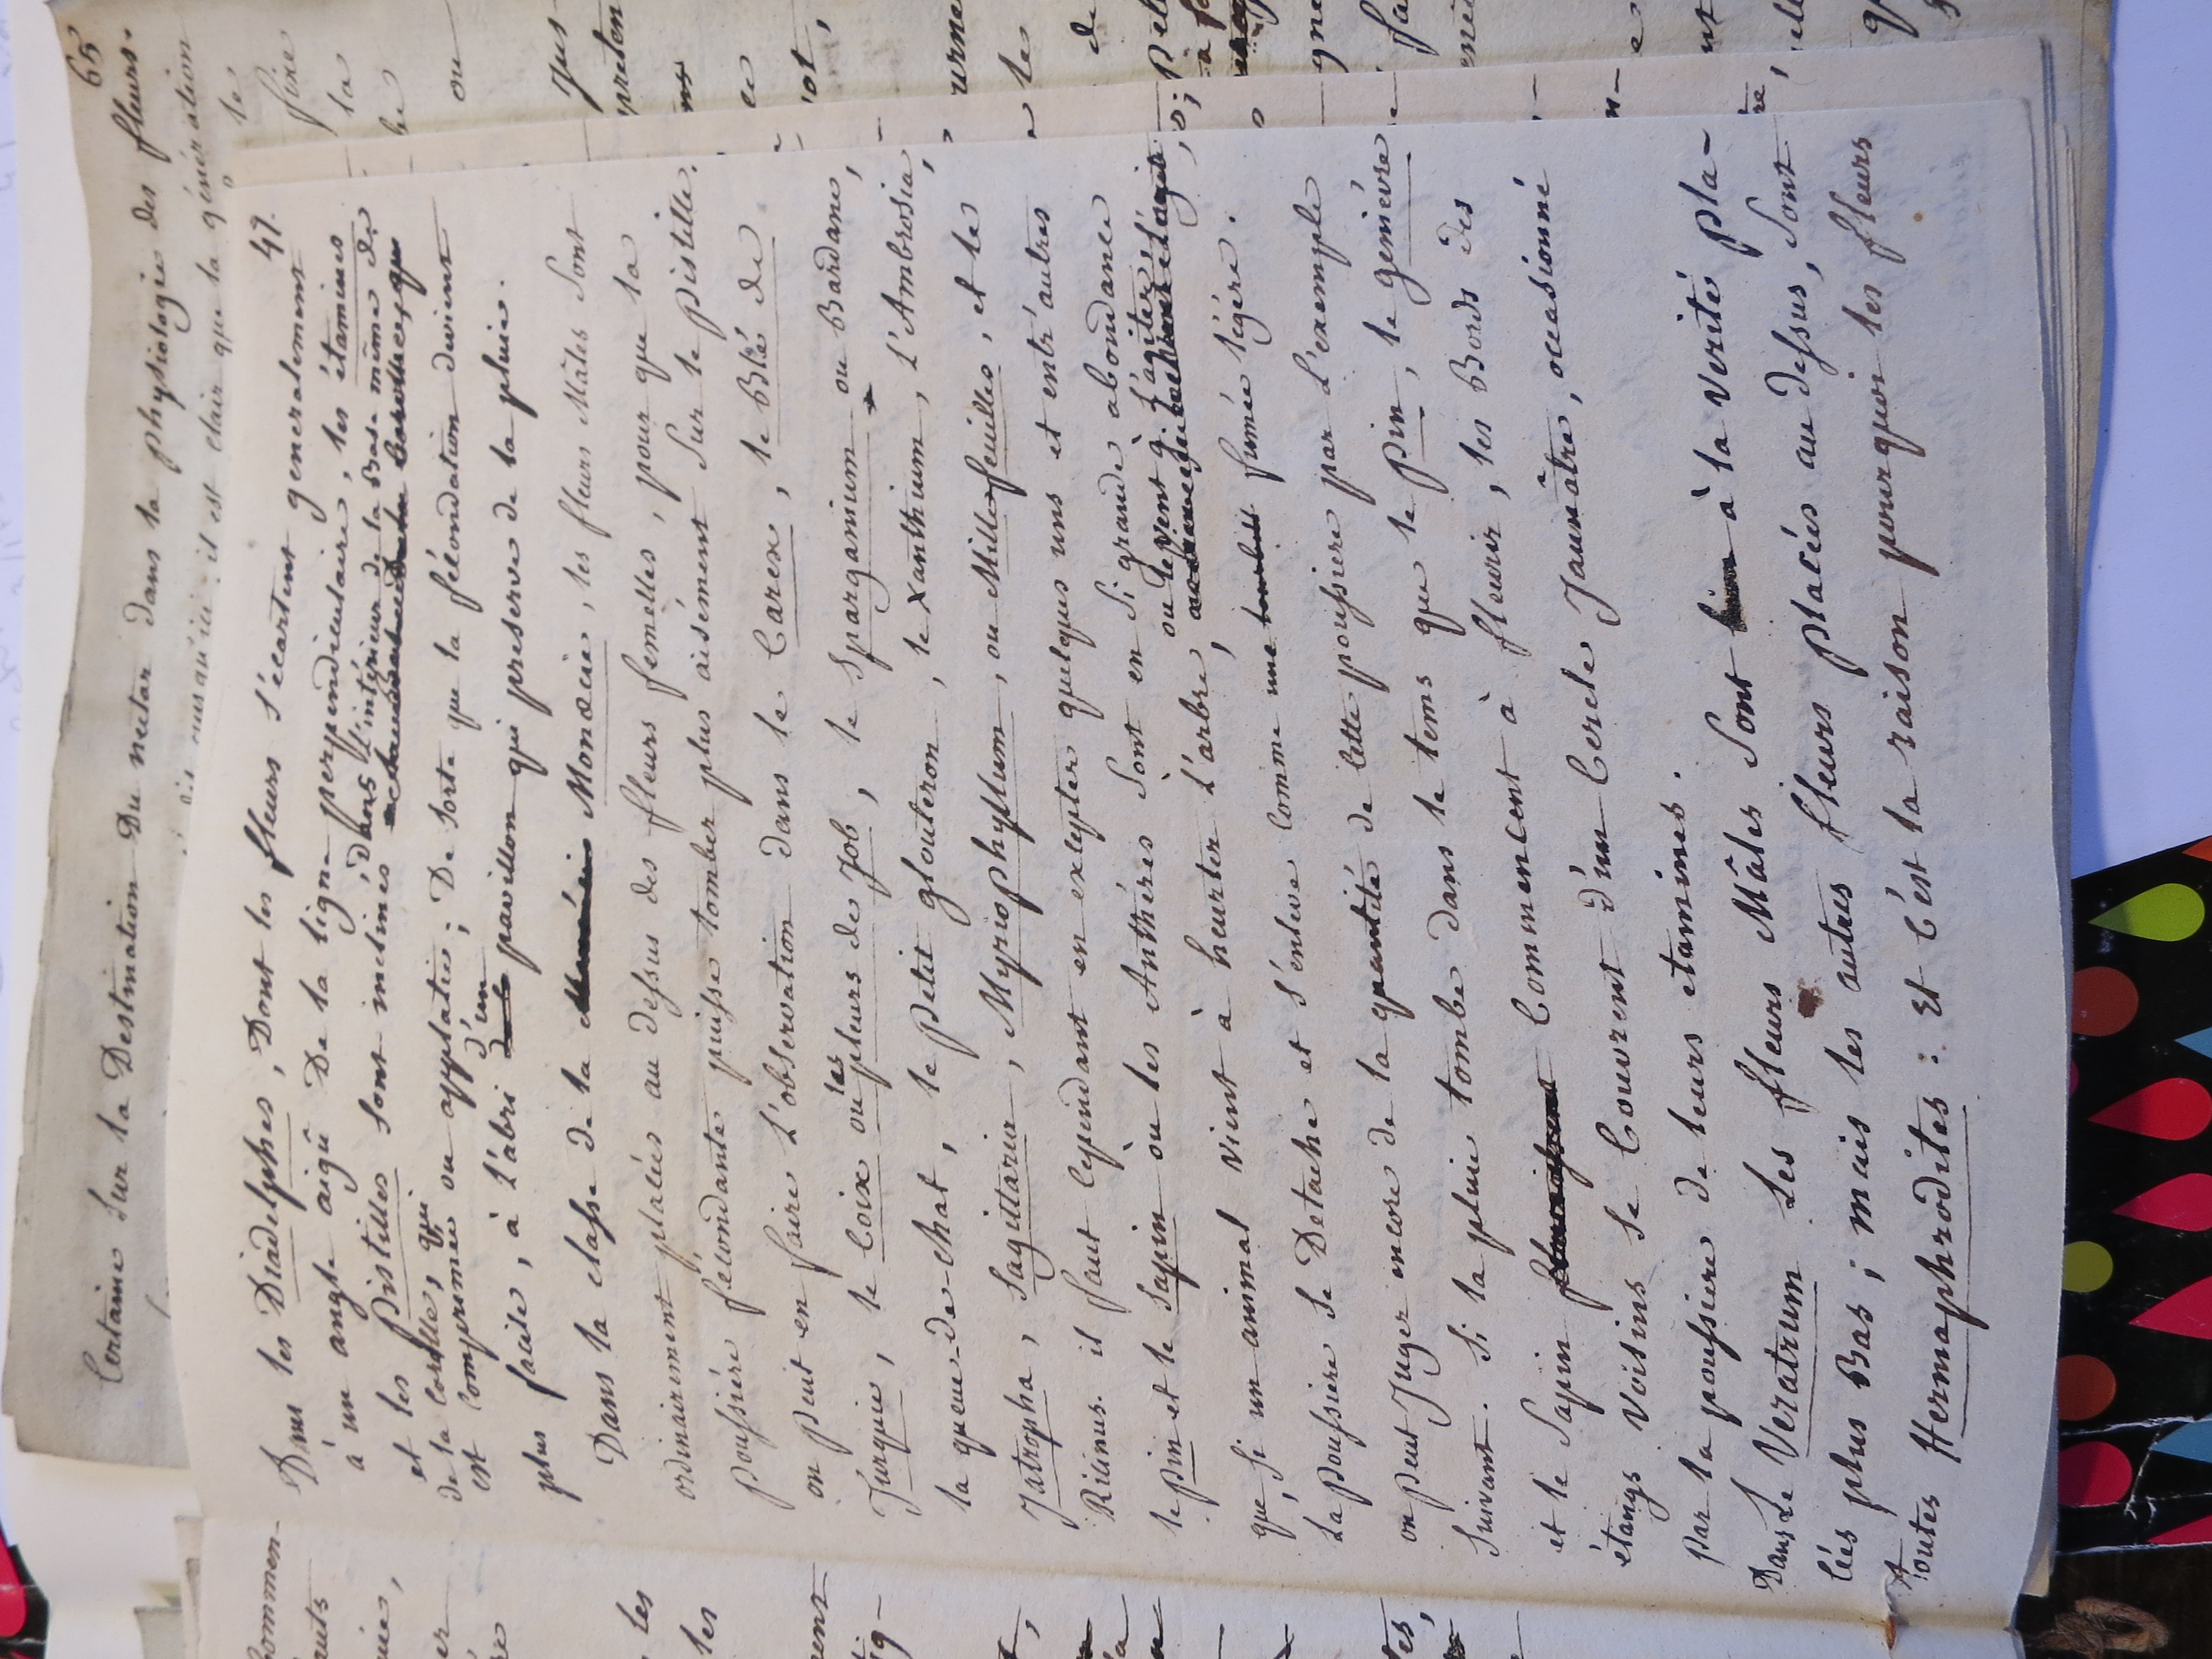 65
Certaine Sur la Destination Du nectar dans la physiologie des fleurs.
il est clair que la génération
49.
Dans les Diadelphes, Dont les fleurs s'écartent generalement
à un angle aigû De la ligne perpendiculaire, les étamines
et les Pistilles sont inclinés, Dans l'intérieur de la Base même de
de la Corolle, qui
est Comprimée ou applatie; De Sorte que la fécondation devient
plus facile, à l'abri d'un pavillon qui preserve de la pluie.
Dans la classe de la Monœcie, les fleurs Mâles Sont
ordinairement placées au dessus des fleurs femelles, pour que la
poussiére fécondante puisse tomber plus aisément Sur le pistille.
on peut en faire L'observation dans le Carex, le Blé de
Turquie, le Coix ou les pleurs de Job, le Sparganium ou Bardane,
la queue-de-chat, le petit glouteron, le Xanthium, L'Ambrosia,
Jatropha, Sagittaria, Myriophyllum, ou Millefeuilles, et le
Ricinus. il faut Cependant en excepter quelques uns et entr'autres
le pin et le Sapin où les Anthéres Sont en Si grande abondance
que, Si un animal vient à heurter L'arbre, ou le vent à l'agiter,
La poussiere se Detache et s'enleve Comme une fumée légére.
on peut Juger encore de la quantité de Cette poussiere par L'exemple
Suivant. Si la pluie tombe dans le tems que le Pin, le genièvre
et le Sapin Commencent à fleurir, les Bords des
étangs Voisins Se Couvrent d'un Cercle Jaunâtre, occasionné
par la poussiere de leurs etamines.
Dans Le Veratrum Les fleurs Mâles Sont à la verité pla-
cées plus Bas; mais les autres fleurs placées au dessus, Sont
toutes Hermaphrodites: Et C'est la raison pourquoi les fleurs